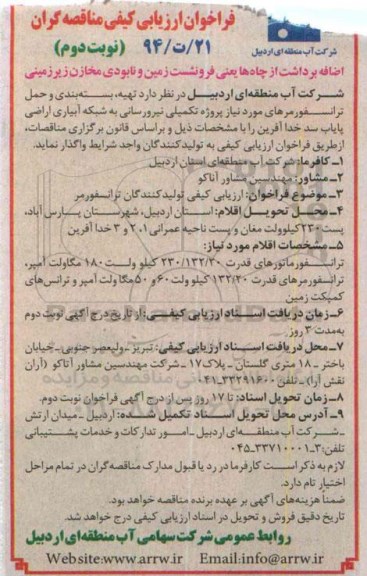 فراخوان ارزیابی کیفی مناقصه گران
۲۱/ت/۹۴ (نوبت دوم)
شرکت آب منطقه ای اردبیل
اضافه برداشت از چاه‌ها یعنی فرونشست زمین و نابودی مخازن زیرزمینی
شرکت آب منطقه‌ای اردبیل در نظر دارد تهیه، بسته‌بندی و حمل
ترانسفورمرهای مورد نیاز پروژه تکمیلی نیرورسانی به شبکه آبیاری اراضی
پایاب سد خدا آفرین را با مشخصات ذیل و براساس قانون برگزاری مناقصات،
از طریق فراخوان ارزیابی کیفی به تولیدکنندگان واجد شرایط واگذار نماید.
۱ـ کافرما: شرکت آب منطقه‌ای استان اردبیل
۲ـ مشاور: مهندسین مشاور آتاکو
۳ـ موضوع فراخوان: ارزیابی کیفی تولیدکنندگان ترانفورمر
۴ـ محل تحویل اقلام: استان اردبیل، شهرستان پارس آباد،
پست ۲۳۰کیلوولت مغان و پست ناحیه عمرانی ۲،۰۱ و ۳ خدا آفرین
۵ـ مشخصات اقلام مورد نیاز:
ترانسفورماتورهای قدرت ۲۳۰/۱۳۲/۲۰ کیلو ولت ۱۸۰ مگاولت آمپر،
ترانسفورمرهای قدرت ۱۳۲/۲۰ کیلو ولت ۶۰ و ۵۰ مگا ولت آمپر و ترانس‌های
کمپکت زمین
۶ـ زمان دریافت اسناد ارزیابی کیفی: از تاریخ درج آگهی نوبت دوم
به‌مدت ۳ روز
۷ـ محل دریافت اسناد ارزیابی کیفی: تبریز ـ ولیعصر جنوبی ـ خیابان
باختر ـ ۱۸ متری گلستان ـ پلاک ۱۷ ـ شرکت مهندسین مشاور آتاکو (آران
نقش آرا). تلفن: ۳۳۲۹۱۶۰۰ـ۰۴۱
۸ـ زمان تحویل اسناد: تا ۱۷ روز پس از درج آگهی فراخوان نوبت دوم.
۹ـ آدرس محل تحویل اسناد تکمیل شده: اردبیل ـ میدان ارتش
ـ شرکت آب منطقه‌ای اردبیل ـ امور تدارکات و خدمات پشتیبانی
تلفن: ۳ـ۳۳۷۱۰۰۰۱ـ۰۴۵
لازم به ذکر است کارفرما در رد یا قبول مدارک مناقصه‌گران در تمام مراحل
اختیار تام دارد.
ضمناً هزینه‌های آگهی بر عهده برنده مناقصه خواهد بود.
تاریخ دقیق فروش و تحویل در اسناد ارزیابی کیفی درج خواهد شد.
روابط عمومی شرکت سهامی آب منطقه‌ای اردبیل
Website:www.arrw.ir    Email:info@arrw.ir